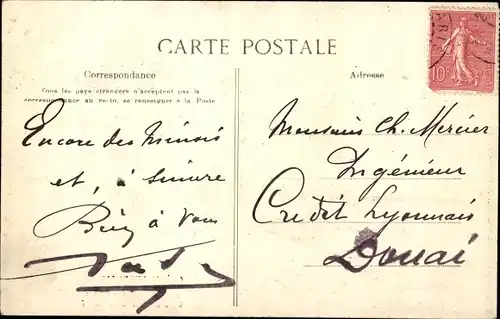 CARTE POSTALE
Correspondance
Tous les pays étrangers n'acceptent pas la
correspondance au recto, se renseigner à la Poste
Adresse
10
Encore des
et, à suivre
Bien à vous
Monsieur Ch. Mercier
Ingénieur
Crédit Lyonnais
Douai